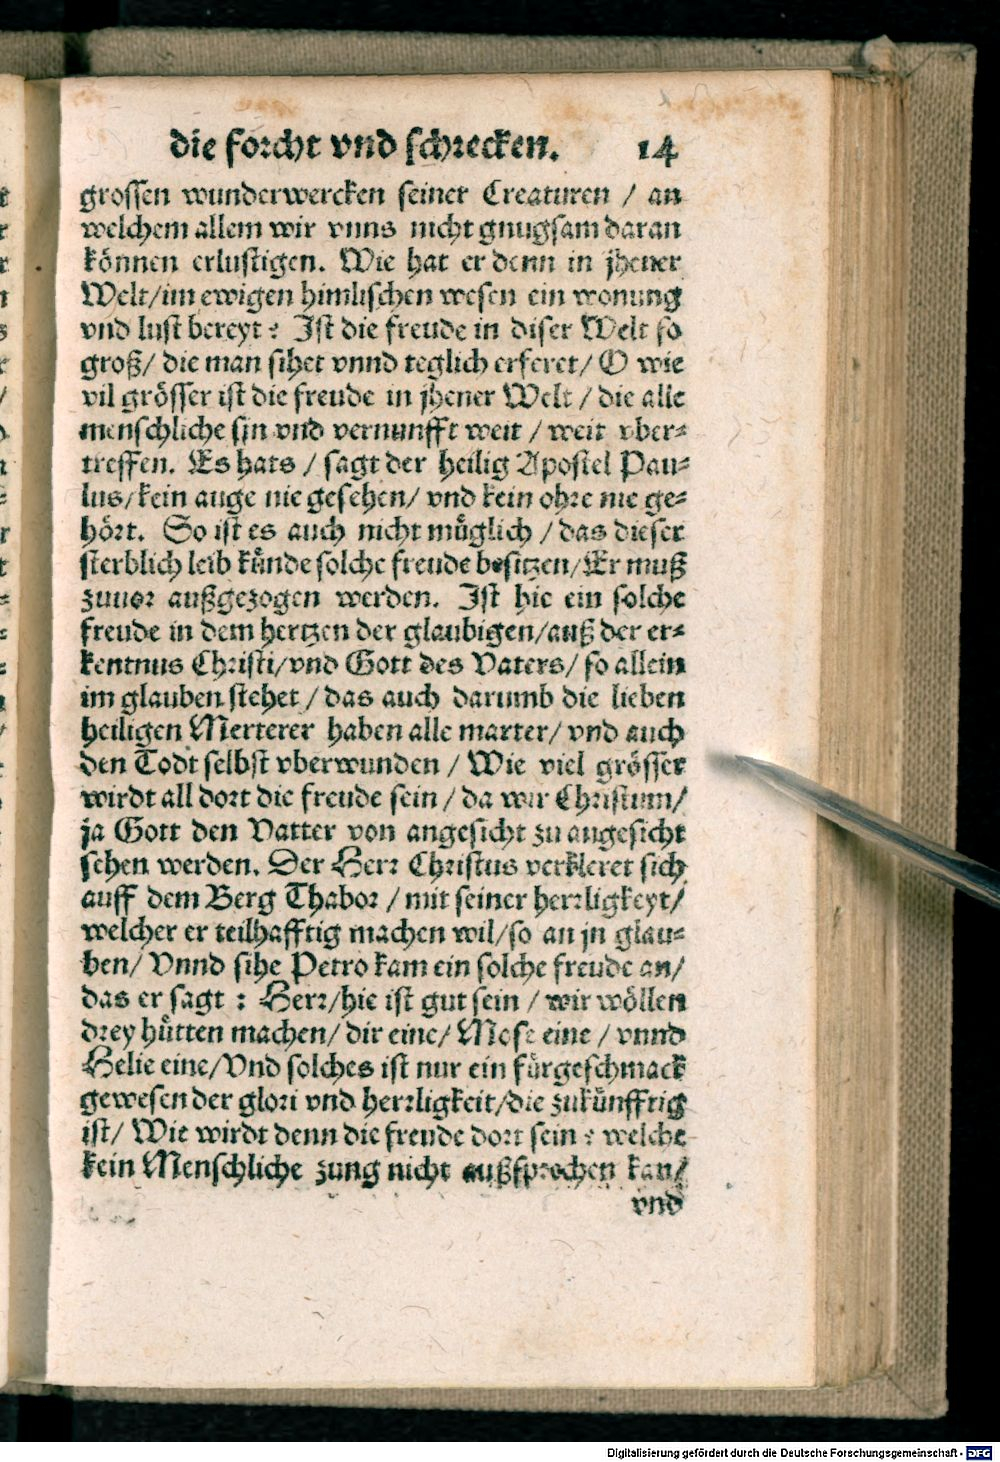 die forcht vnd schrecken. 14
grossen wunderwercken seiner Creaturen / an
welchem allem wir vnns nicht gnugsam daran
können erlustigen. Wie hat er denn in jhener
Welt/im ewigen himlischen wesen ein wonung
vnd lust bereyt? Ist die freude in diser Welt so
groß/ die man sihet vnnd teglich erferet/ O wie
vil grösser ist die freude in jhener Welt / die alle
menschliche sin vnd vernunfft weit / weit vber=
treffen. Es hats / sagt der heilig Apostel Pau=
lus/kein auge nie gesehen/ vnd kein ohre nie ge=
hört. So ist es auch nicht müglich / das dieser
sterblich leib künde solche freude besitzen/Er muß
zuuor außgezogen werden. Ist hie ein solche
freude in dem hertzen der glaubigen/auß der er=
kentnus Christi/vnd Gott des Vaters/ so allein
im glauben stehet / das auch darumb die lieben
heiligen Merterer haben alle marter/ vnd auch
den Todt selbst vberwunden / Wie viel grösser
wirdt all dort die freude sein / da wir Christum/
ja Gott den Vatter von angesicht zu angesicht
sehen werden. Der Herr Christus verkleret sich
auff dem Berg Thabor / mit seiner herrligkeyt/
welcher er teilhafftig machen wil/so an jn glau=
ben/ Vnnd sihe Petro kam ein solche freude an/
das er sagt : Herr/hie ist gut sein / wir wöllen
drey hütten machen/ dir eine/ Mose eine / vnnd
Helie eine/Vnd solches ist nur ein fürgeschmack
gewesen der glori vnd herrligkeit/die zukünfftig
ist/ Wie wirdt denn die freude dort sein? welche
kein Menschliche zung nicht außsprechen kan/
vnd
Digitalisierung gefördert durch die Deutsche Forschungsgemeinschaft - DFG